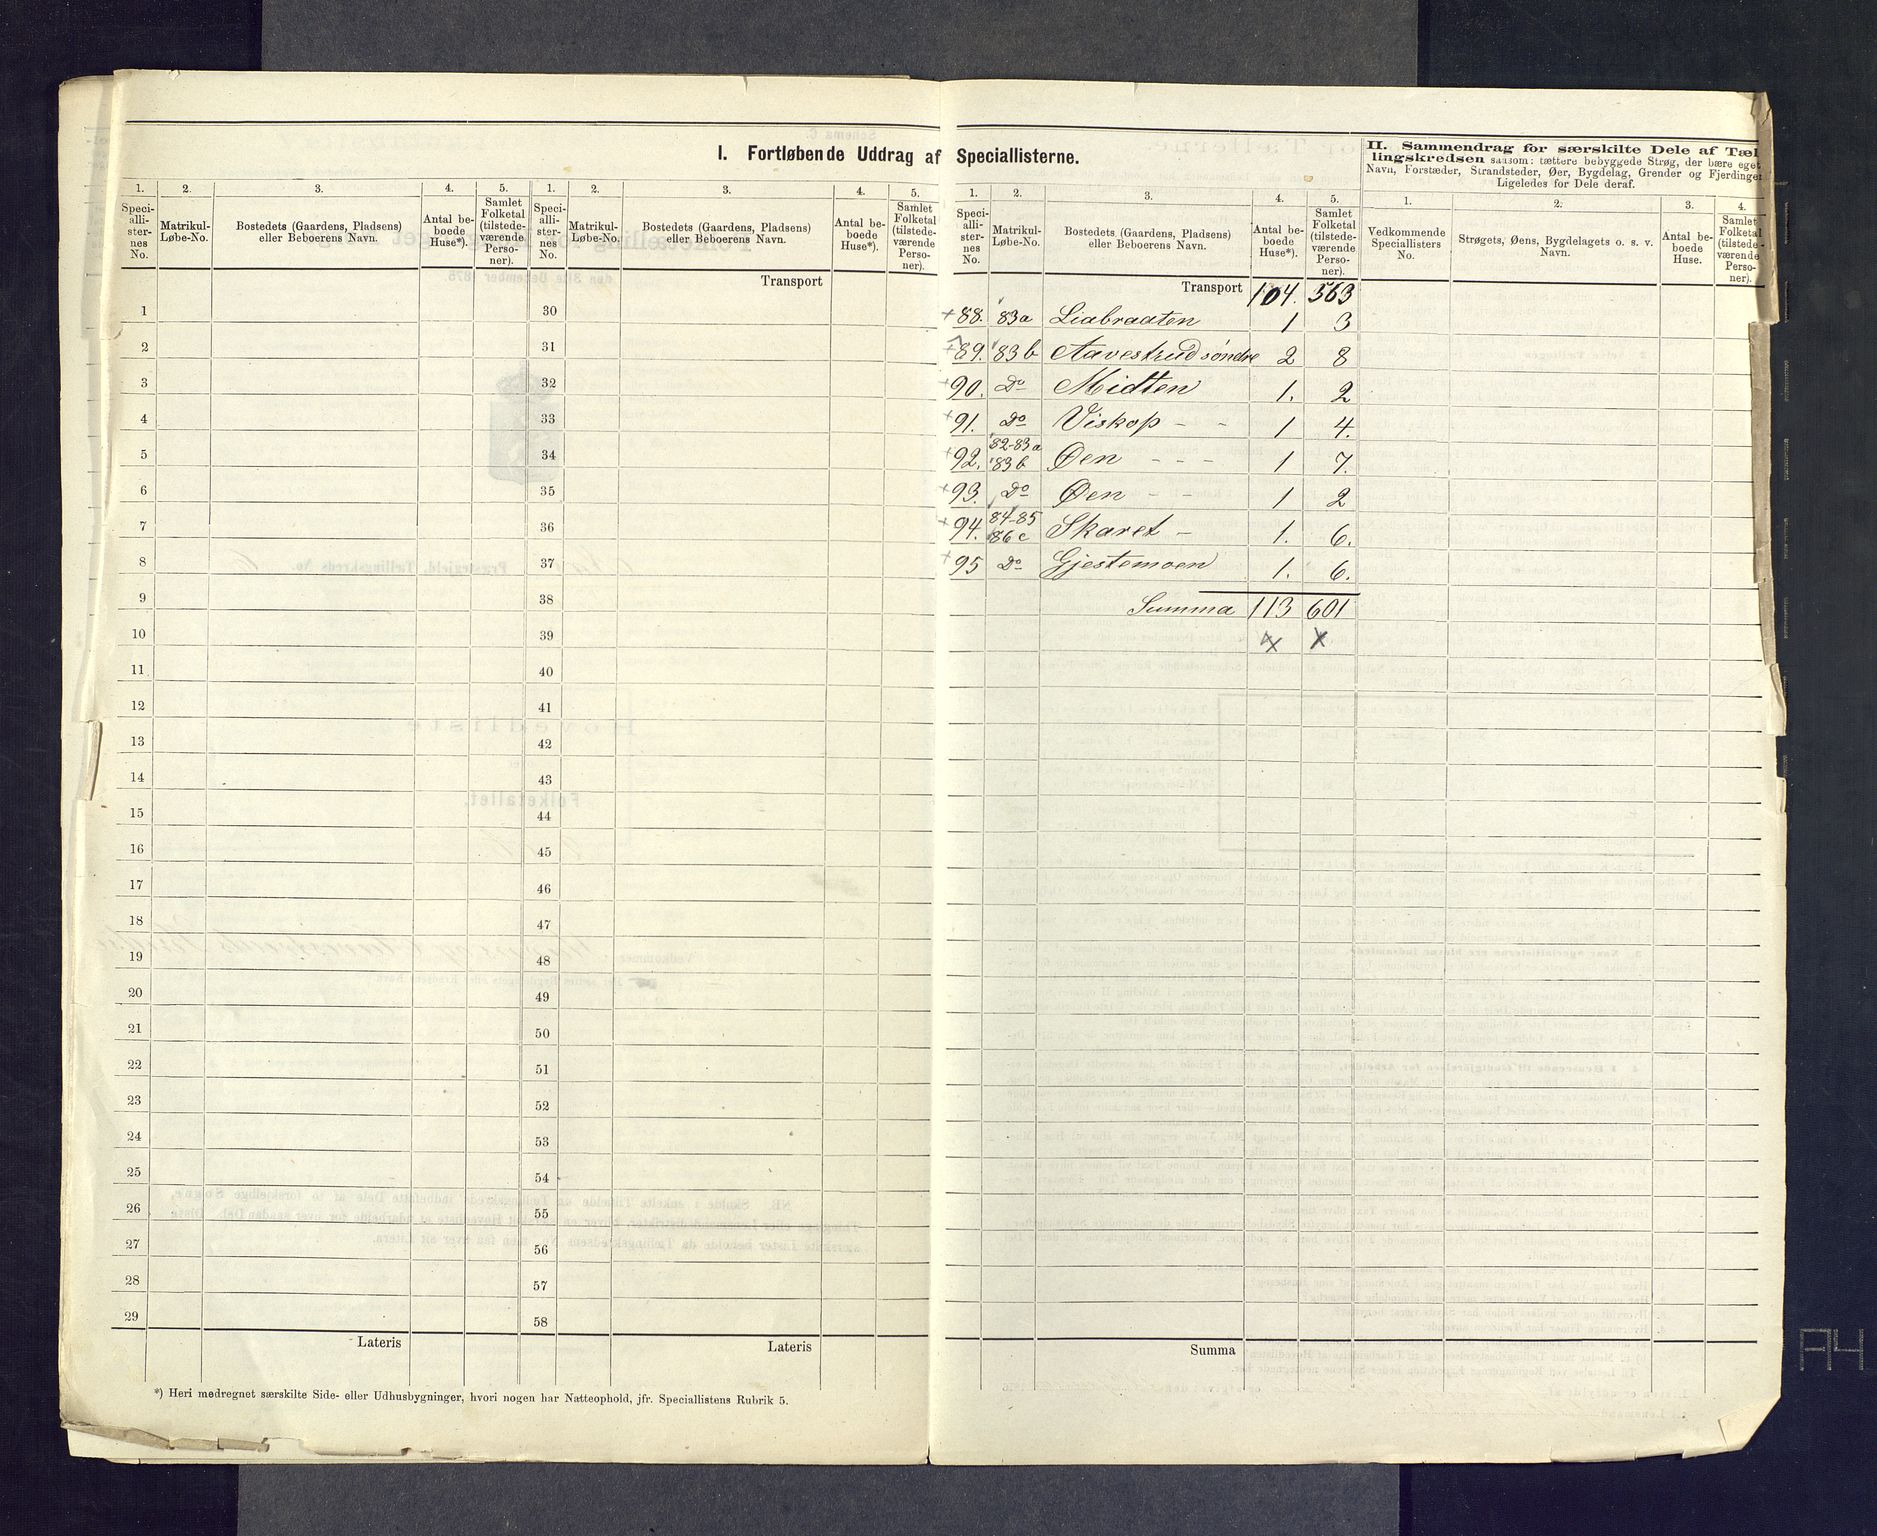 I. Fortløbende Uddrag af Speciallisterne.
1. 2. 3. 4. 5. 1. 2. 3. 4. 5.
Speciallisternes No. Matrikul-Løbe-No. Bostedets (Gaardens, Pladsens) eller Beboerens Navn. Antal beboede Huse*). Samlet Folketal (tilstedeværende Personer). Speciallisternes No. Matrikul-Løbe-No. Bostedets (Gaardens, Pladsens) eller Beboerens Navn. Antal beboede Huse*). Samlet Folketal (tilstedeværende Personer).
Transport
1 30
2 31
3 32
4 33
5 34
6 35
7 36
8 37
9 38
10 39
11 40
12 41
13 42
14 43
15 44
16 45
17 46
18 47
19 48
20 49
21 50
22 51
23 52
24 53
25 54
26 55
27 56
28 57
29 58
Lateris Lateris
*) Heri medregnet særskilte Side- eller Udhusbygninger, hvori nogen har Natteophold, jfr. Speciallistens Rubrik 5.
1. 2. 3. 4. 5.
Speciallisternes No. Matrikul-Løbe-No. Bostedets (Gaardens, Pladsens) eller Beboerens Navn. Antal beboede Huse*). Samlet Folketal (tilstedeværende Personer).
Transport 104. 563
88. 83a Liabraaten 1 3
89. 83b Aavestrud søndre 2 8
90. Do Midten 1. 2
91. Do Viskop - - 1 4.
92. 82-83a 83b Øen - - - 1 7.
93. Do Øen - - 1 2
94. 84-85 86c Skaret - 1. 6.
95 Do Gjestemoen 1. 6.
Summa 113 601
Summa
II. Sammendrag for særskilte Dele af Tæl
lingskredsen saasom: tættere bebyggede Strøg, der bære eget
Navn, Forstæder, Strandsteder, Øer, Bygdelag, Grender og Fjerdinger
Ligeledes for Dele deraf.
1. 2. 3. 4.
Vedkommende Speciallisters No. Strøgets, Øens, Bygdelagets o. s. v. Navn. Antal beboede Huse. Samlet Folketal (tilstedeværende Personer).